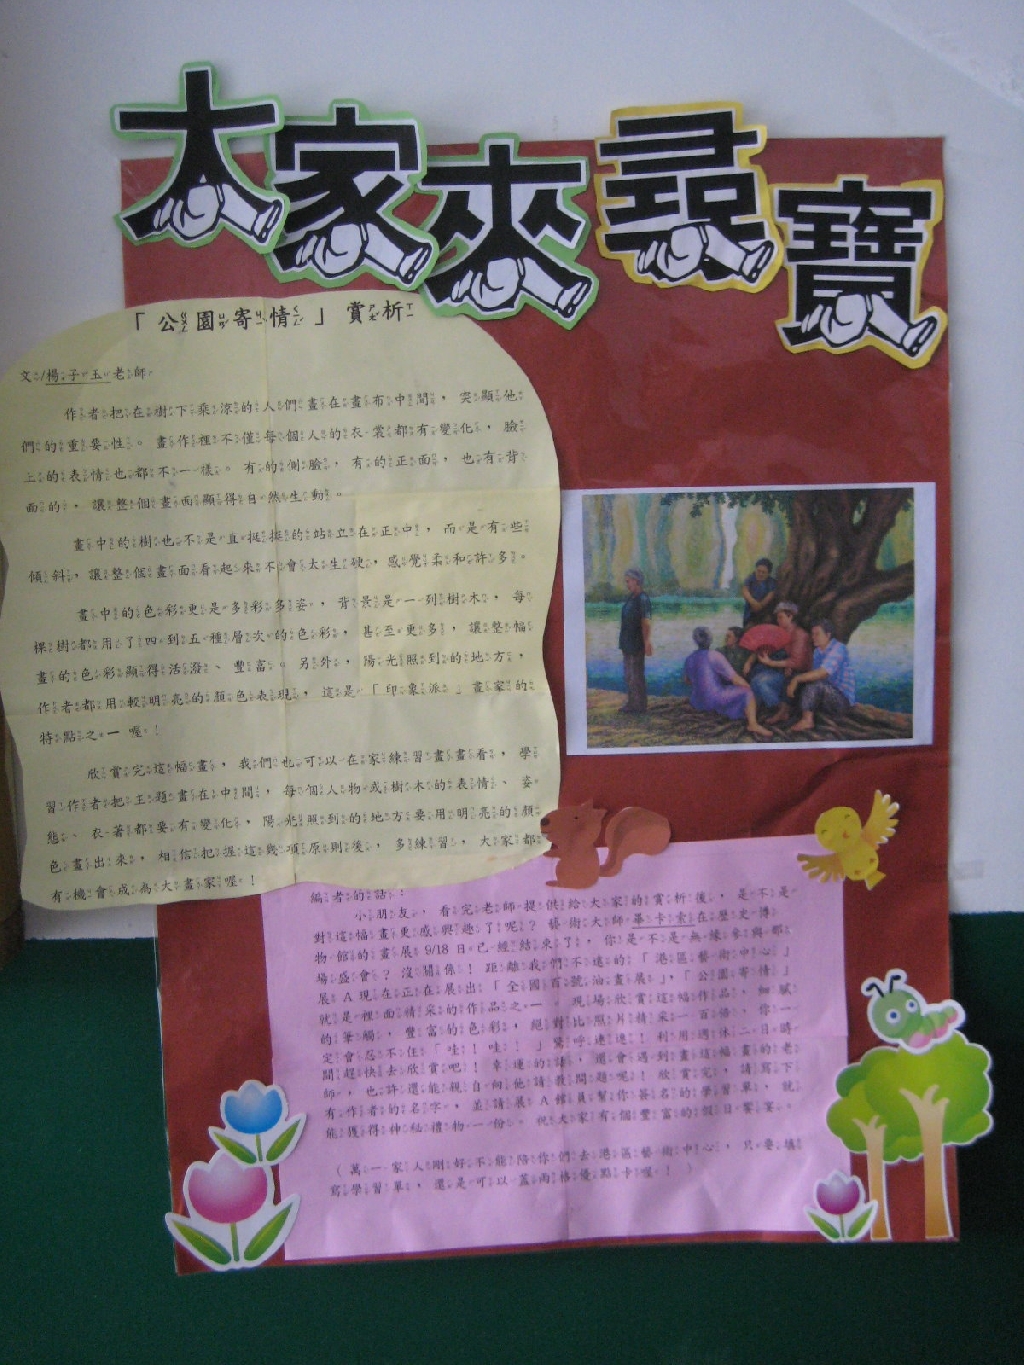 大家來尋寶
「公園寄情」賞析
文/楊子玉老師
作者把在樹下乘涼的人們畫在畫布中間，突顯他
們的重要性。畫作裡不僅每個人的衣裳都有變化，臉
上的表情也都不一樣。有的側臉，有的正面，也有背
面的，讓整個畫面顯得自然生動。
畫中的樹也不是直挺挺的站立在正中，而是有些
傾斜，讓整個畫面看起來不會太生硬，感覺柔和許多。
畫中的色彩更是多彩多姿，背景是一列樹木，每
棵樹都用了四到五種層次的色彩，甚至更多，讓整幅
畫的色彩顯得活潑、豐富。另外，陽光照到的地方，
作者都用較明亮的顏色表現，這是「印象派」畫家的
特點之一喔！
欣賞完這幅畫，我們也可以在家練習畫畫看，學
習作者把主題畫在中間，每個人物或樹木的表情、姿
態、衣著都要有變化，陽光照到的地方要用明亮的顏
色畫出來，相信把握這幾項原則後，多練習，大家都
有機會成為大畫家喔！
編者的話：
小朋友，看完老師提供給大家的賞析後，是不是
對這幅畫更感興趣了呢？藝術大師畢卡索在歷史博
物館的畫展9/18日已經結束了，你是不是無緣參與那
場盛會？沒關係！距離我們不遠的「港區藝術中心」
展A現在正在展出「全國百號油畫展」，「公園寄情」
就是裡面精采的作品之一。現場欣賞這幅作品，細膩
的筆觸，豐富的色彩，絕對比照片精采一百倍，你一
定會忍不住「哇！哇！」驚呼連連！利用週休二日時
間趕快去欣賞吧！幸運的話，還會遇到畫這幅畫的老
師，也許還能親自向他請教問題呢！欣賞完，請寫下
有作者的名字，並請展A館員幫你簽名的學習單，就
能獲得神祕禮物一份。祝大家有個豐富的假日饗宴。
（萬一家人剛好不能陪你們去港區藝術中心，只要填
寫學習單，還是可以蓋兩格優點卡喔！）